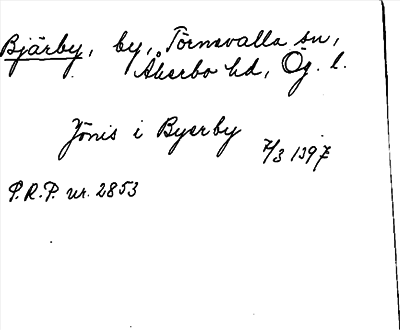 Bjärby, by, Törnevalla sn,
Åkerbo hd, Ög. l.
Jönis i Byerby
7/3 1397
P.R.P. nr. 2853